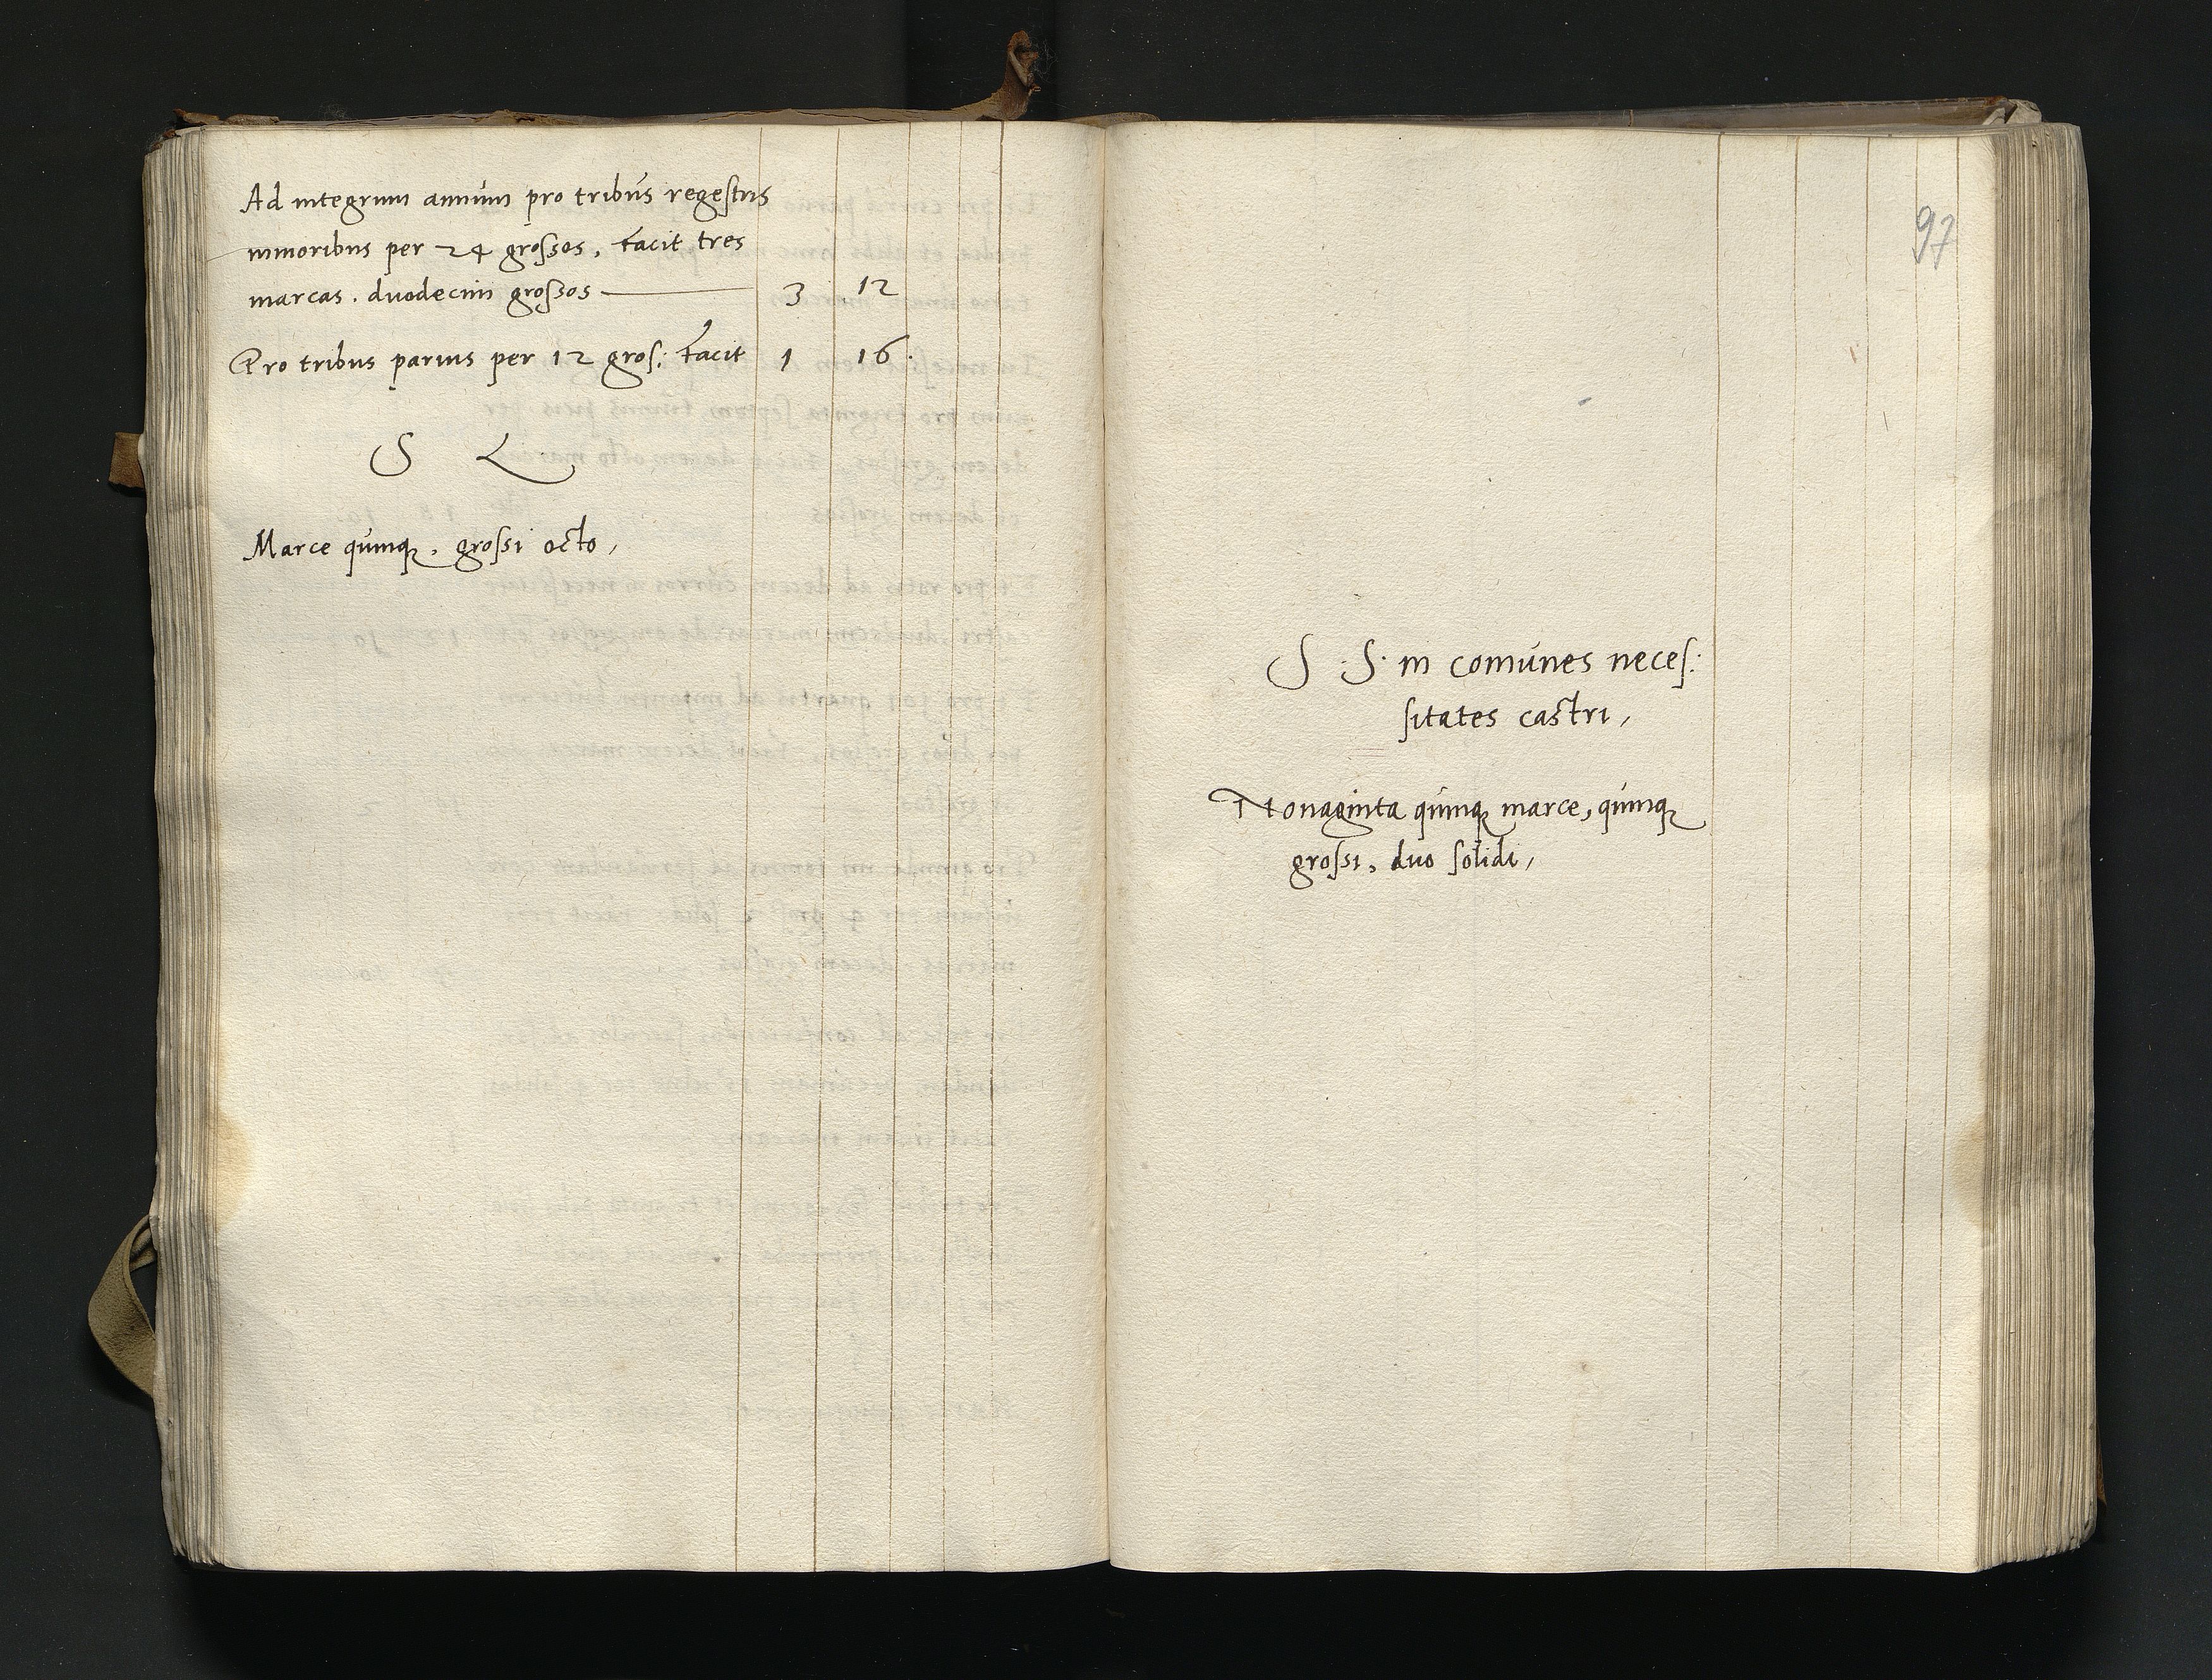 Ad integrum annum pro tribus regestris
minoribus per 24 grossos, facit tres
marcas. duodecim grossos 3 12
Pro tribus parvis per 12 gros: facit 1 16.
S L
Marce quinq, grossi octo,
97
S S. in comunes neces:
sitates castri,
Nonaginta quinq marce, quinq
grossi, duo solidi,